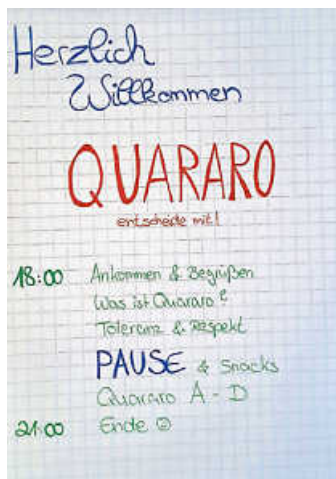 Herzlich
Willkommen
QUARARO
entscheide mit!
18:00 Ankommen & Begrüßen
Was ist Quararo?
Toleranz & Respekt
PAUSE & Snacks
Quararo A - D
21:00 Ende ☺